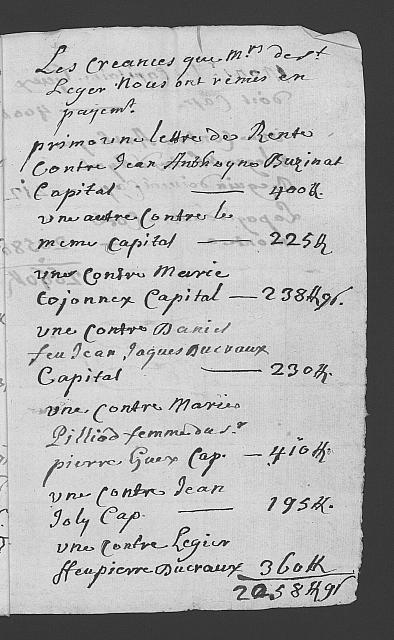 Les Creances que Mrs de St
Leger Nous ont remis en
payemt.
primo une lettre de Rente
Contre Jean Anthoyne Buzinat
Capital — 400 ft.
une autre Contre le
meme Capital — 225 ft
une Contre Marie
Cojonnex Capital — 238 ft 9s.
une Contre Daniel
feu Jean Jaques Ducraux
Capital — 230 ft.
une Contre Marie
Pilliod femme du Sr
pierre Guex Cap. — 410 ft.
une Contre Jean
Joly Cap. — 195 ft.
une Contre Legier
ffeu pierre Ducraux 360 ft
2258 ft 9s